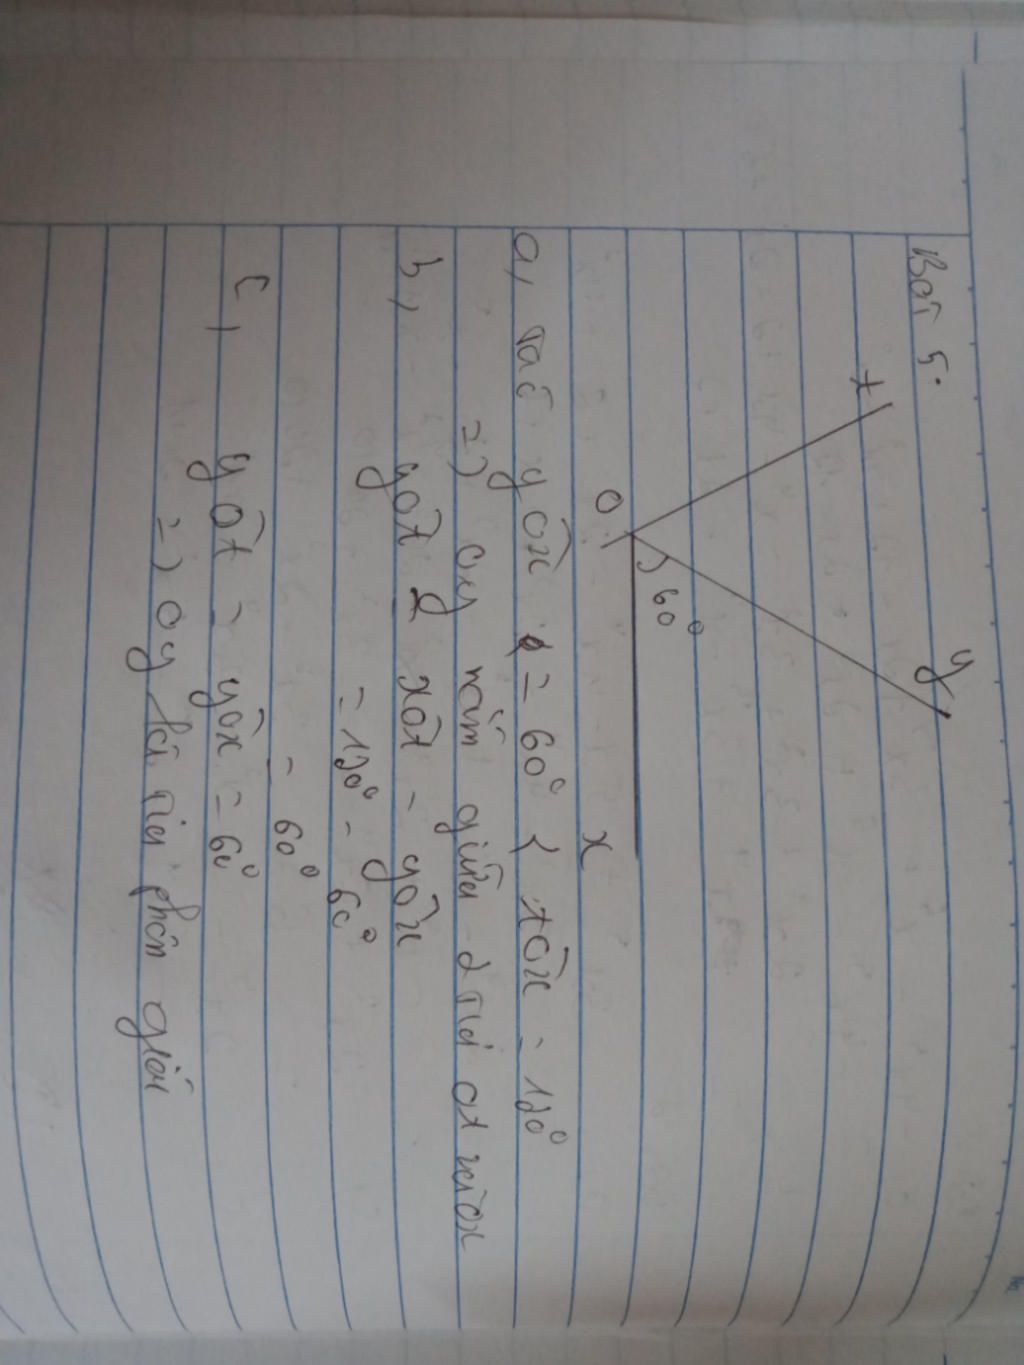 Bài 5.
t
y
60°
O
x
a, Ta có yôx = 60° < tôx = 120°
=) oy nằm giữa 2 tia ot và ox
b, yôt = xôt - yôx
= 120° - 60°
= 60°
c, yôt = yôx = 60°
=) oy là tia phân giác